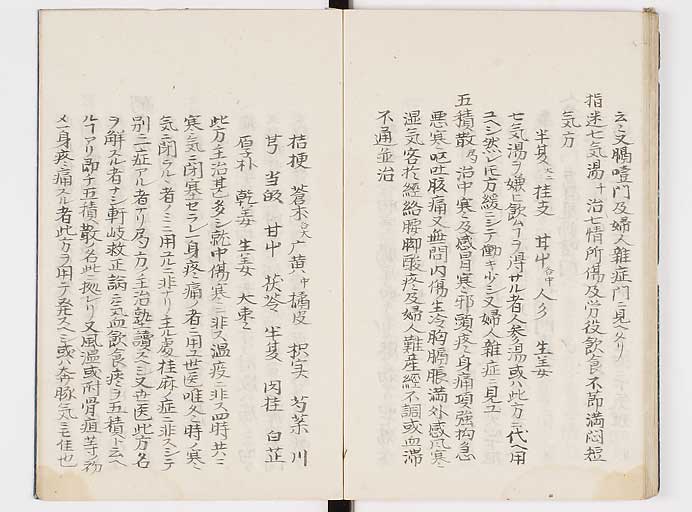 云々又膈噎門及婦人雜症門ニ見ヘタリ
指迷七気湯 治七情所傷及労役飲食不節満悶短
気方
半夏 桂支 甘艸 人参 生姜
七気湯ヲ嫌ヒ飲ムヿヲ得サル者人参湯或ハ此方ニ代ヘ用
ユヘシ然シ此方緩ニシテ働キ少シ又婦人雜症ニ見ユ
五積散 治中寒及感冒寒邪頭疼身痛項強拘急
悪寒嘔吐腹痛又無問内傷生冷胸膈脹満外感風寒
湿気客於經絡腰脚酸疼及婦人難産經不調或血滞
不通並治
桔梗 蒼朮 广黄 橘皮 枳实 芍薬 川
芎 当皈 甘艸 茯苓 半夏 肉桂 白芷
厚朴 乾姜 生姜 大枣
此方主治甚多シ就中傷寒ニ非ス温疫ニ非ス四時共ニ
寒気ニ閉塞セラレ一身疼痛ノ者ニ用ユ世医唯冬ノ時ノ寒
気ニ閉ラル者ノミニ用ユルニ非サナリ主ル處桂麻ノ症ニ非スシテ
別ニ一症アル者ナリ局方ノ主治塾讀スヘシ又世医此方名
ヲ解スル者ナシ軒岐救正論ニ気血飲食痰ヲ五積ト云ヘ
ルヿアリ即チ五積散ノ名此ニ拠レリ又風湿或耐骨疽等ノ初
メ一身疼痛スル者此方ヲ用テ発スヘシ或ハ奔豚気ニモ佳也